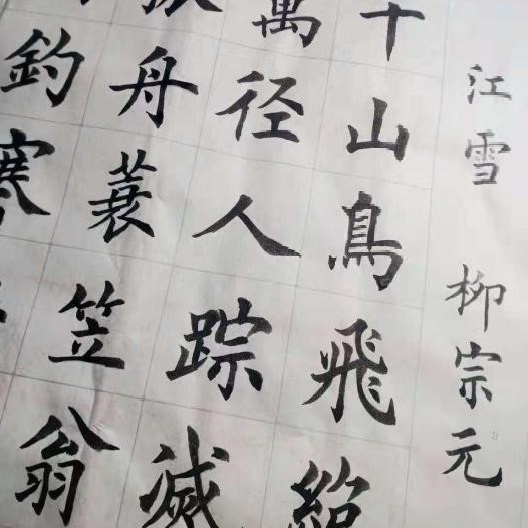 江雪 柳宗元
千山鳥飛絕
萬径人踪滅
舟蓑笠翁
釣寒